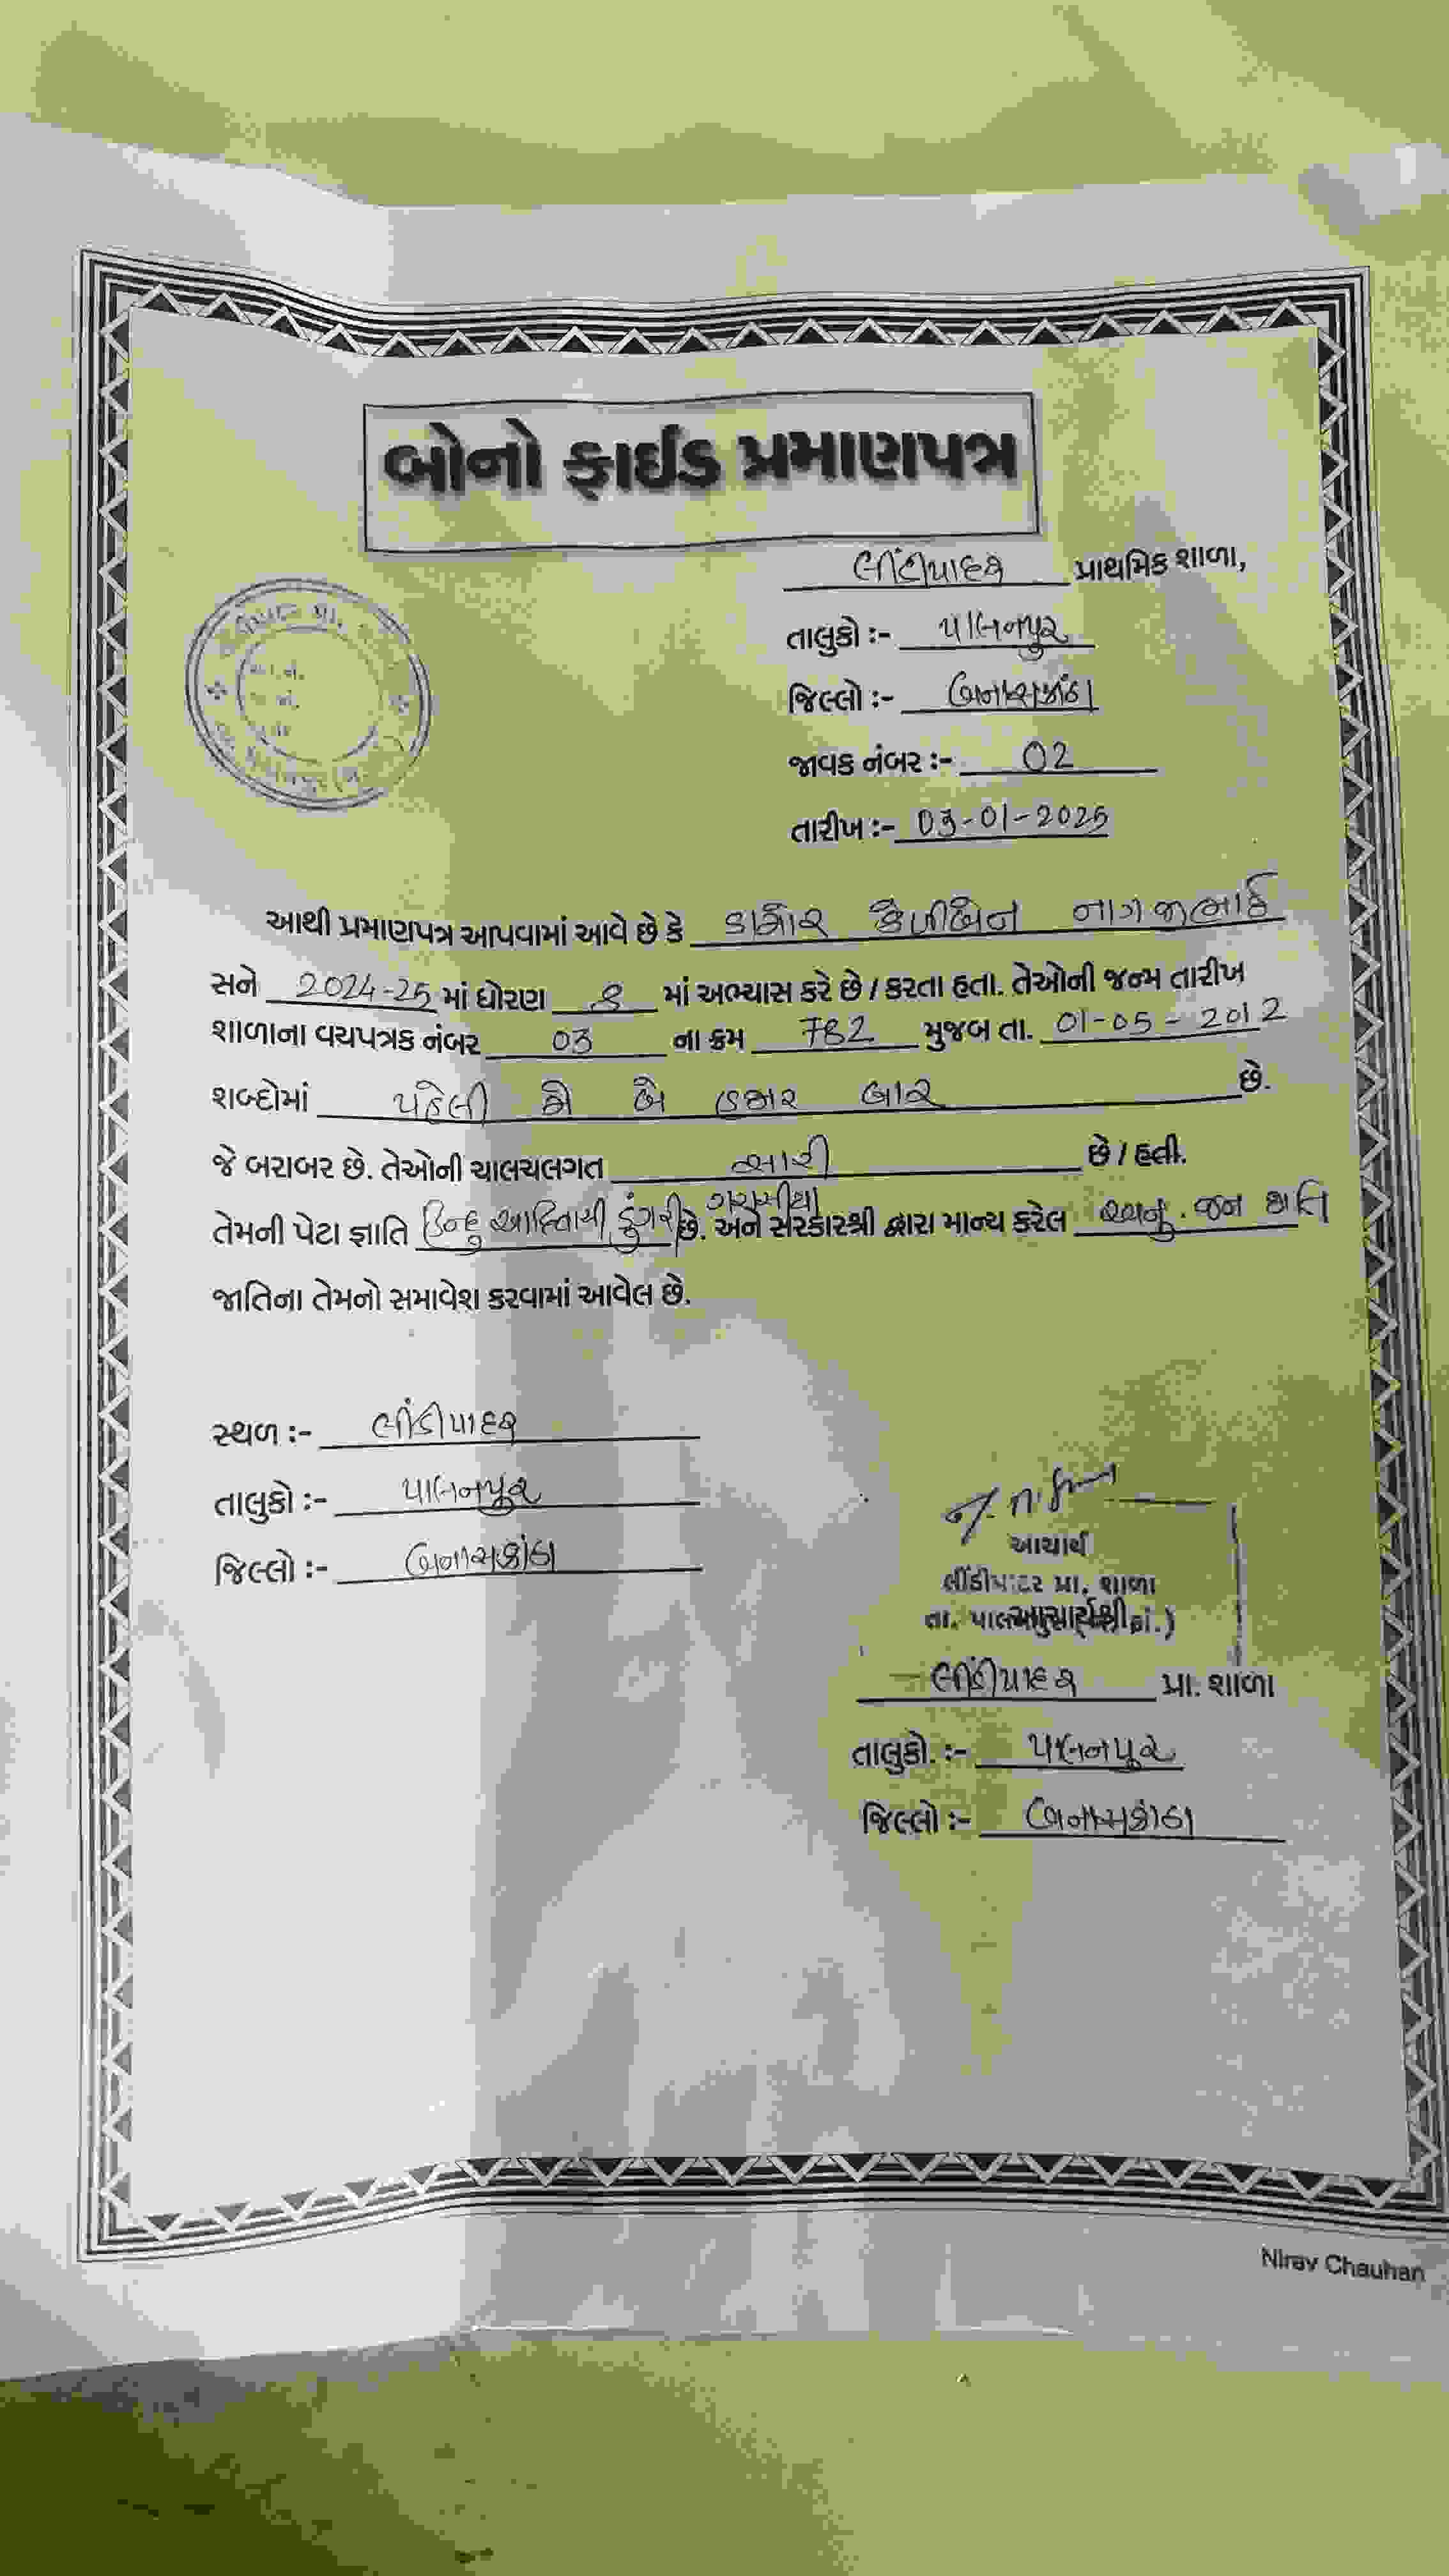 બોનો ફાઈડ પ્રમાણપત્ર
લીંડીપાદર પ્રાથમિક શાળા,
તાલુકો :- પાલનપુર
જિલ્લો :- બનાસકાંઠા
જાવક નંબર :- 02
તારીખ :- 03-01-2025
આથી પ્રમાણપત્ર આપવામાં આવે છે કે ડામોર કેળીબેન નાગજીભાઈ
સને 2024-25 માં ધોરણ 8 માં અભ્યાસ કરે છે / કરતા હતા. તેઓની જન્મ તારીખ
શાળાના વયપત્રક નંબર 03 ના ક્રમ 782 મુજબ તા. 01-05-2012
શબ્દોમાં પહેલી મે બે હજાર બાર છે.
જે બરાબર છે. તેઓની ચાલચલગત સારી છે / હતી.
તેમની પેટા જ્ઞાતિ હિન્દુ આદિવાસી ડુંગરી ગરાસીયા છે. અને સરકારશ્રી દ્વારા માન્ય કરેલ અનુ. જન જાતિ
જાતિના તેમનો સમાવેશ કરવામાં આવેલ છે.
સ્થળ :- લીંડીપાદર
તાલુકો :- પાલનપુર
જિલ્લો :- બનાસકાંઠા
આચાર્ય
લીંડીપાદર પ્રા. શાળા
તા. પાલનપુર
આચાર્યશ્રી
લીંડીપાદર પ્રા. શાળા
તાલુકો. :- પાલનપુર
જિલ્લો :- બનાસકાંઠા
Nirav Chauhan